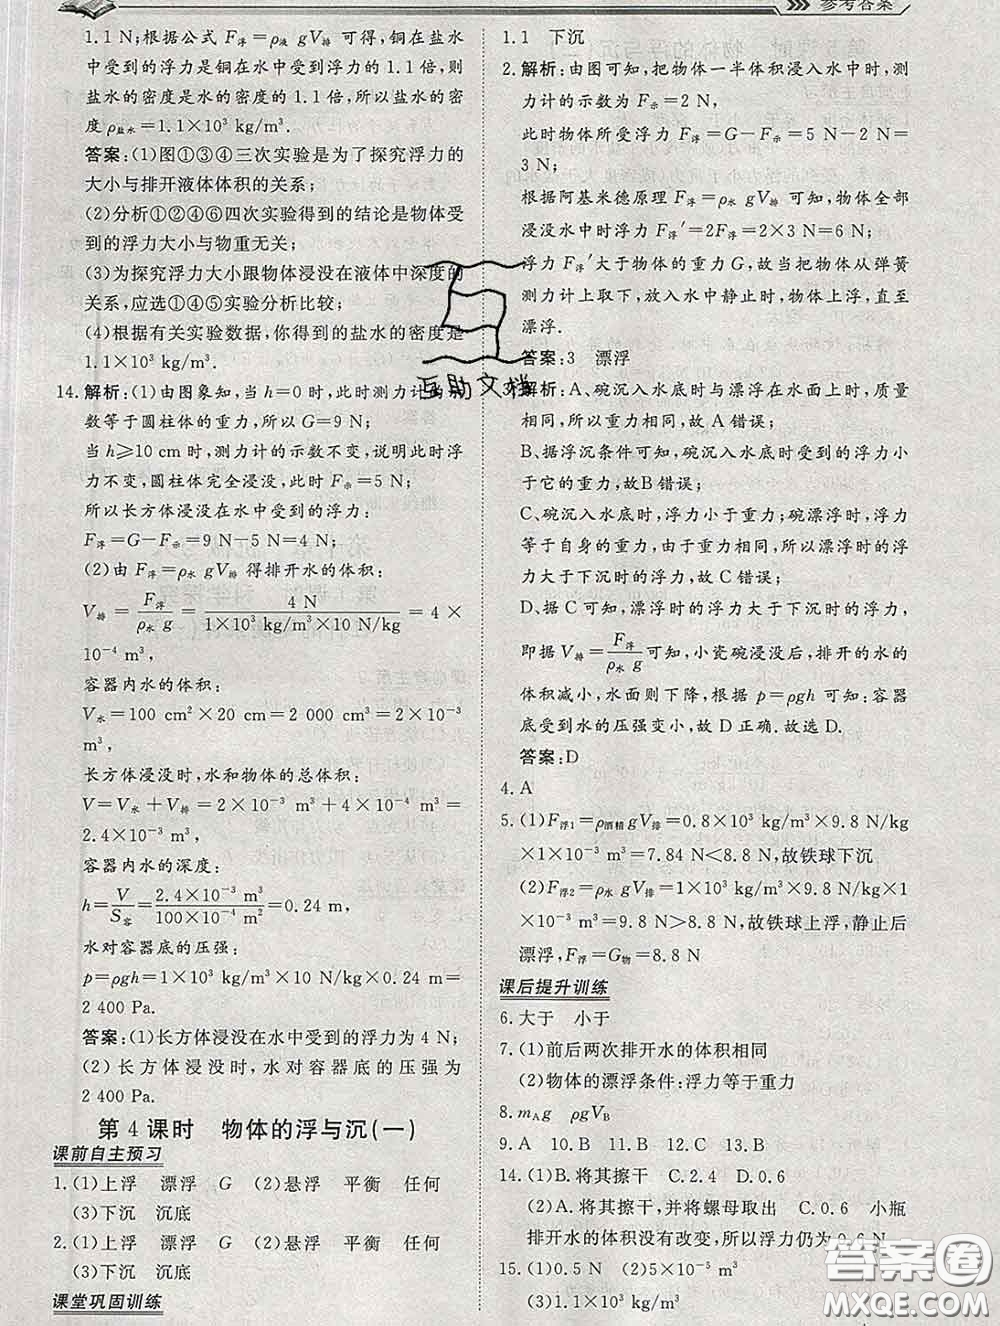 参考答案
1.1 N;根据公式 F浮=ρ液 gV排 可得,铜在盐水
中受到的浮力是铜在水中受到浮力的 1.1 倍,则
盐水的密度是水的密度的 1.1 倍,所以盐水的密
度 ρ盐水=1.1×10³ kg/m³.
答案:(1)图①③④三次实验是为了探究浮力的
大小与排开液体体积的关系;
(2)分析①②④⑥四次实验得到的结论是物体受
到的浮力大小与物重无关;
(3)为探究浮力大小跟物体浸没在液体中深度的
关系,应选①④⑤实验分析比较;
(4)根据有关实验数据,你得到的盐水的密度是
1.1×10³ kg/m³.
14.解析:(1)由图象知,当 h=0 时,此时测力计的示
数等于圆柱体的重力,所以 G=9 N;
当 h≥10 cm 时,测力计的示数不变,说明此时浮
力不变,圆柱体完全浸没,此时 F示=5 N;
所以长方体浸没在水中受到的浮力:
F浮=G−F示=9 N−5 N=4 N;
(2)由 F浮=ρ水 gV排 得排开水的体积:
V排=F浮/ρ水 g=4 N/1×10³ kg/m³×10 N/kg=4×
10⁻⁴ m³,
容器内水的体积:
V水=100 cm²×20 cm=2 000 cm³=2×10⁻³
m³,
长方体浸没时,水和物体的总体积:
V=V水+V排=2×10⁻³ m³+4×10⁻⁴ m³=
2.4×10⁻³ m³,
容器内水的深度:
h=V/S容=2.4×10⁻³ m³/100×10⁻⁴ m²=0.24 m,
水对容器底的压强:
p=ρgh=1×10³ kg/m³×10 N/kg×0.24 m=
2 400 Pa.
答案:(1)长方体浸没在水中受到的浮力为 4 N;
(2)长方体浸没时,水对容器底的压强为
2 400 Pa.
第 4 课时 物体的浮与沉(一)
课前自主预习
1.(1)上浮 漂浮 G (2)悬浮 平衡 任何
(3)下沉 沉底
2.(1)上浮 漂浮 G (2)悬浮 平衡 任何
(3)下沉 沉底
课堂巩固训练
1.1 下沉
2.解析:由图可知,把物体一半体积浸入水中时,测
力计的示数为 F示=2 N,
此时物体所受浮力 F浮=G−F示=5 N−2 N=
3 N;
根据阿基米德原理 F浮=ρ水 gV排 可知,物体全部
浸没水中时浮力 F浮′=2F浮=2×3 N=6 N;
浮力 F浮′大于物体的重力 G,故当把物体从弹簧
测力计上取下,放入水中静止时,物体上浮,直至
漂浮.
答案:3 漂浮
3.解析:A、碗沉入水底时与漂浮在水面上时,质量
相同,所以重力相同,故 A 错误;
B、据浮沉条件可知,碗沉入水底时受到的浮力小
于它的重力,故B 错误;
C、碗沉入水底时,浮力小于重力;碗漂浮时,浮力
等于自身的重力,由于重力相同,所以漂浮时的浮力
大于下沉时的浮力,故 C 错误;
D、据 C 可知,漂浮时的浮力大于下沉时的浮力,
即据 V排=F浮/ρ水 g 可知,小瓷碗浸没后,排开的水的
体积减小,水面则下降,根据 p=ρgh 可知:容器
底受到水的压强变小,故 D 正确.故选 D.
答案:D
4.A
5.(1)F浮1=ρ酒精 gV排=0.8×10³×9.8 N/kg
×1×10⁻³ m³=7.84 N<8.8 N,故铁球下沉
(2)F浮2=ρ水 gV排=1×10³×9.8 N/kg×1
×10⁻³ m³=9.8 N>8.8 N,故铁球上浮,静止后
漂浮,F浮=G物=8.8 N
课后提升训练
6.大于 小于
7.(1)前后两次排开水的体积相同
(2)物体的漂浮条件:浮力等于重力
8.mAg ρgVB
9.A 10.B 11.B 12.C 13.B
14.(1)B.将其擦干 C.2.4 D.0.6
(2)A.将其擦干,并将螺母取出 C.0.6 小瓶
排开水的体积没有改变,所以浮力仍为 0.6 N
15.(1)0.5 (2)5×10⁻⁵ m³
(3)1.1×10³
互助文档
答案圈
MXQE.COM